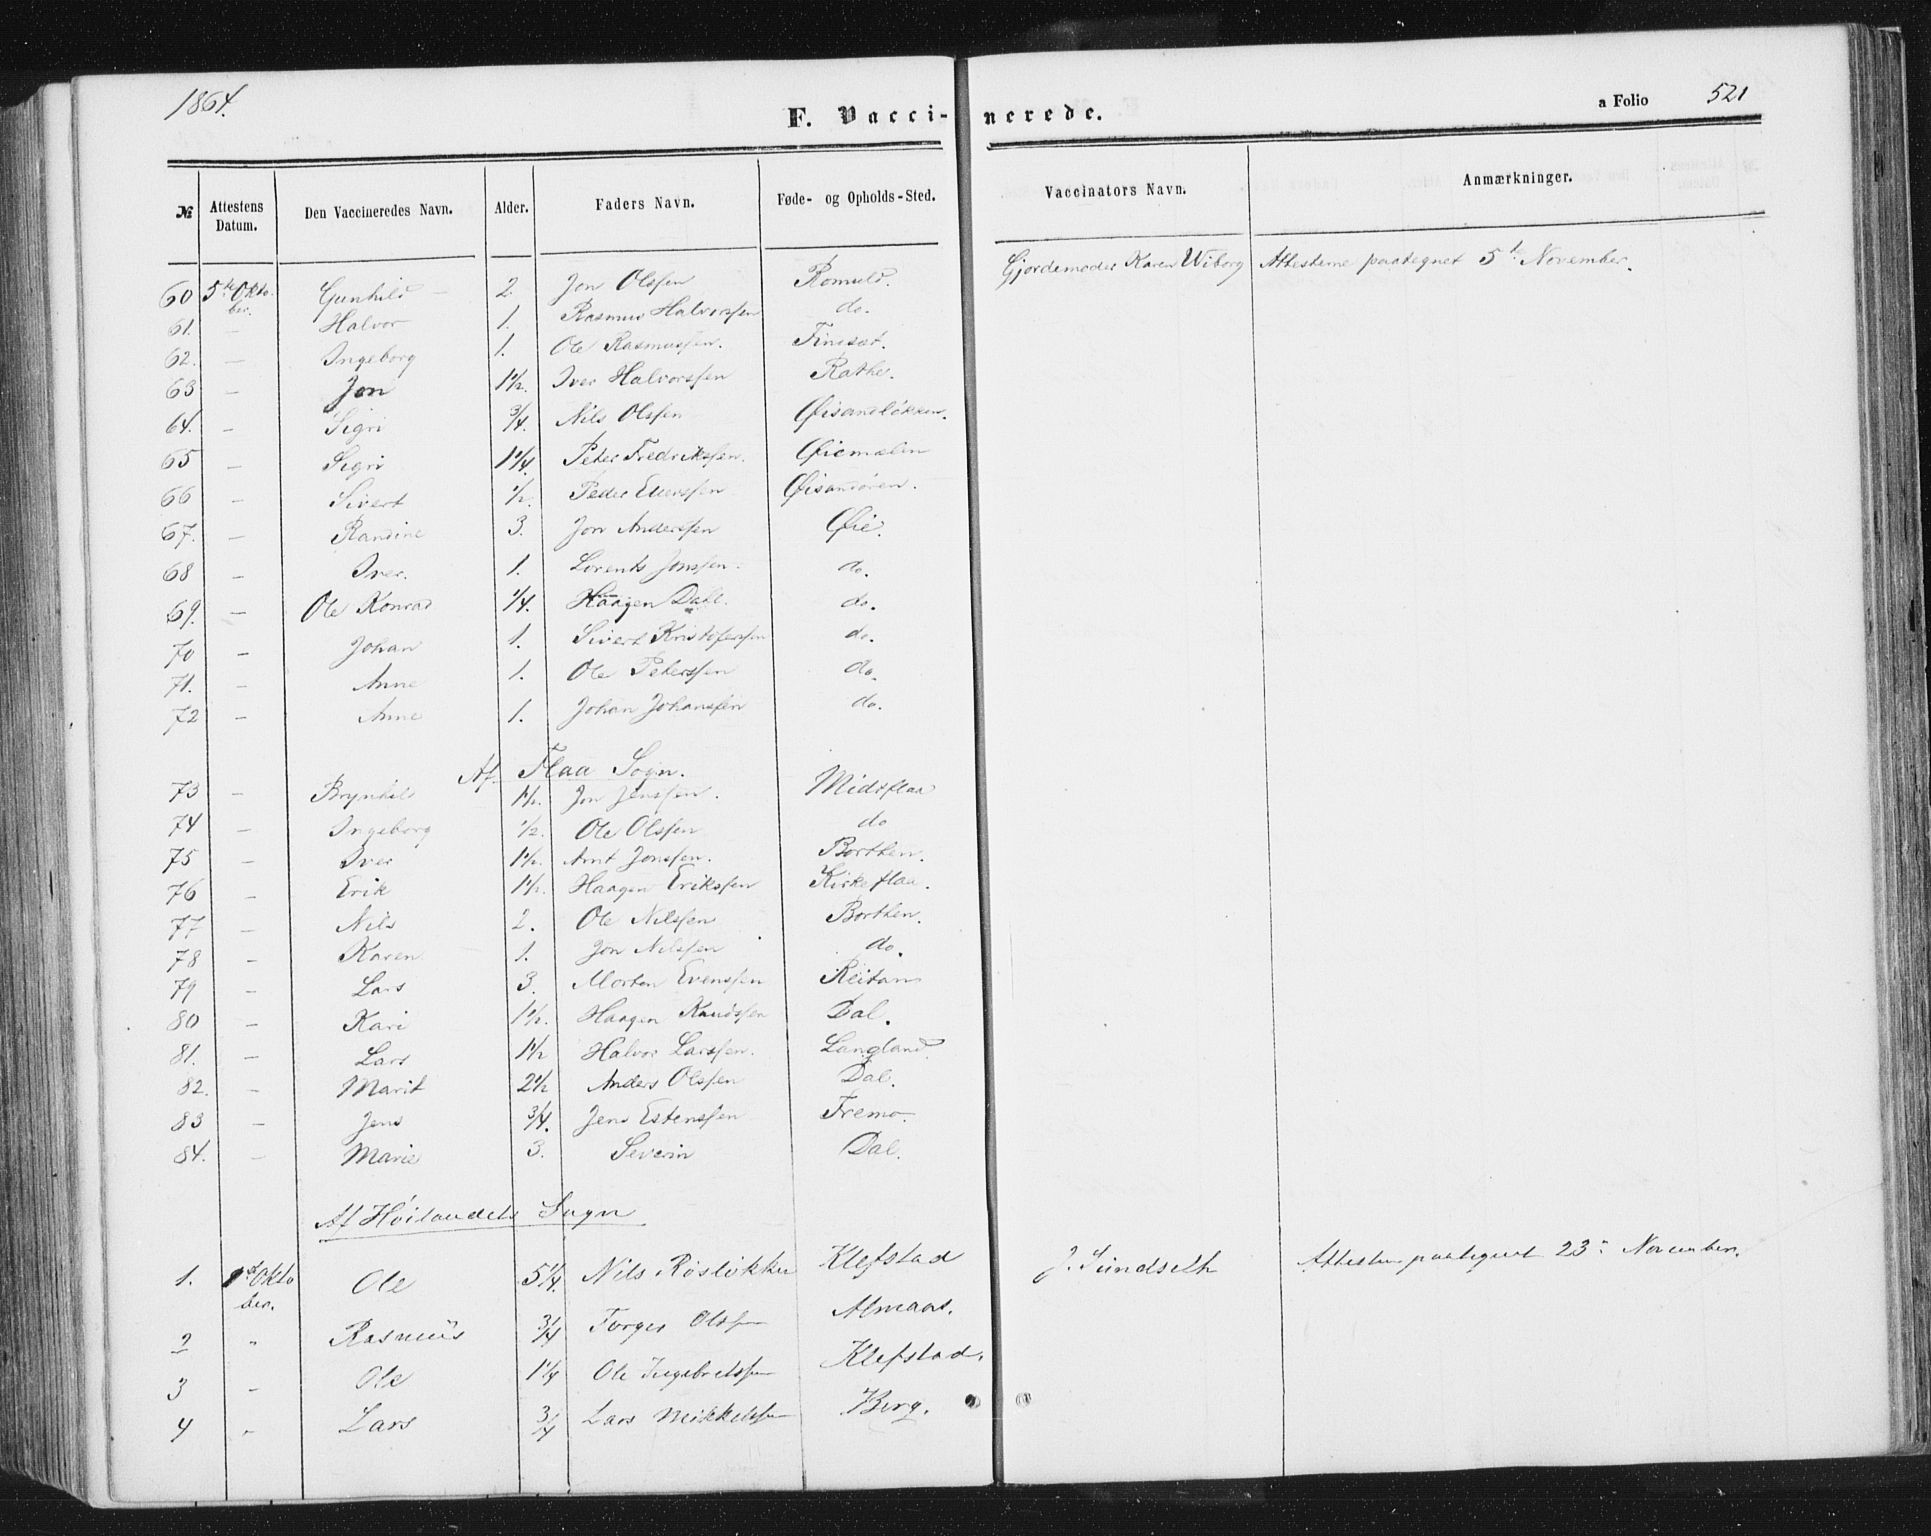 1864.
F. Vaccinerede.
a Folio 521
№ Attestens Datum. Den Vaccineredes Navn. Alder. Faders Navn. Føde- og Opholds-Sted. Vaccinators Navn. Anmærkninger.
60 5te Okto- Gunhild 2. Jon Olssen Romuld. Gjordemoder Karen Wiborg Attesterne paategnet 5te November.
ber.
61. — Halvor 1. Rasmus Halvorssen do.
62. — Ingeborg 1. Ole Rasmussen.
63 — Jon 1½. Iver Halvorssen Rathe.
64. — Sigri ¾. Nils Olssen Øisandløkken.
65 — Sigri 1¼. Peter Fredrikssen. Øiemælen
66 — Sivert ½. Peder Øisandøren.
67. — Randine 3. Jon Anderssen Øie.
68 — Iver. 1. Lorents Jonssen. do.
69. — Ole Konrad ¼. Haagen Dahl. do.
70 — Johan 1. Sivert Kristoferssen do.
71. — Anne 1. Ole Peterssen do.
72 — Anne 1. Johan Johanssen do.
Af Flaa Sogn.
73 — Brynhild 1½. Jon Jenssen. Midtflaa
74 — Ingeborg ½. Ole Olssen do
75 — Iver 1½. Arnt Jonssen. Borthen.
76 — Erik 1½. Haagen Erikssen Kirkeflaa.
77 — Nils 2. Ole Nilssen Borthen.
78 — Karen 1. Jon Nilssen do.
79 — Lars 3. Morten Evenssen Reitan
80 — Kari 1½. Haagen Knudssen Dal.
81. — Lars 1½ Halvor Larssen. Langland.
82. — Marit 2½ Anders Olssen Dal.
83 — Jens ¾. Jens Estenssen Fremo
84. — Marie 3. Severin Dal.
Af Høilandets Sogn
1. 1ste Okto Ole 5¼. Nils Røsløkken Klefstad J. Sundseth Attesten paategnet 23de November.
ber.
2 " Rasmus ¾ Torger Olssen Almaas.
3 — Ole 1¼ Ole Ingebretssen Klefstad.
4 " Lars ¾ Lars Mikkelssen Berg.